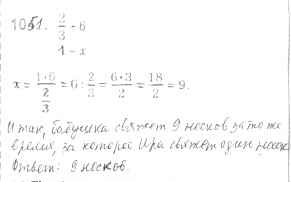 1051. 2/3 - 6
1 - x
x = 1·6 / 2/3 = 6 : 2/3 = 6·3/2 = 18/2 = 9.
Итак, бабушка свяжет 9 носков за то же
время, за которое Ира свяжет один
Ответ: 9 носков.